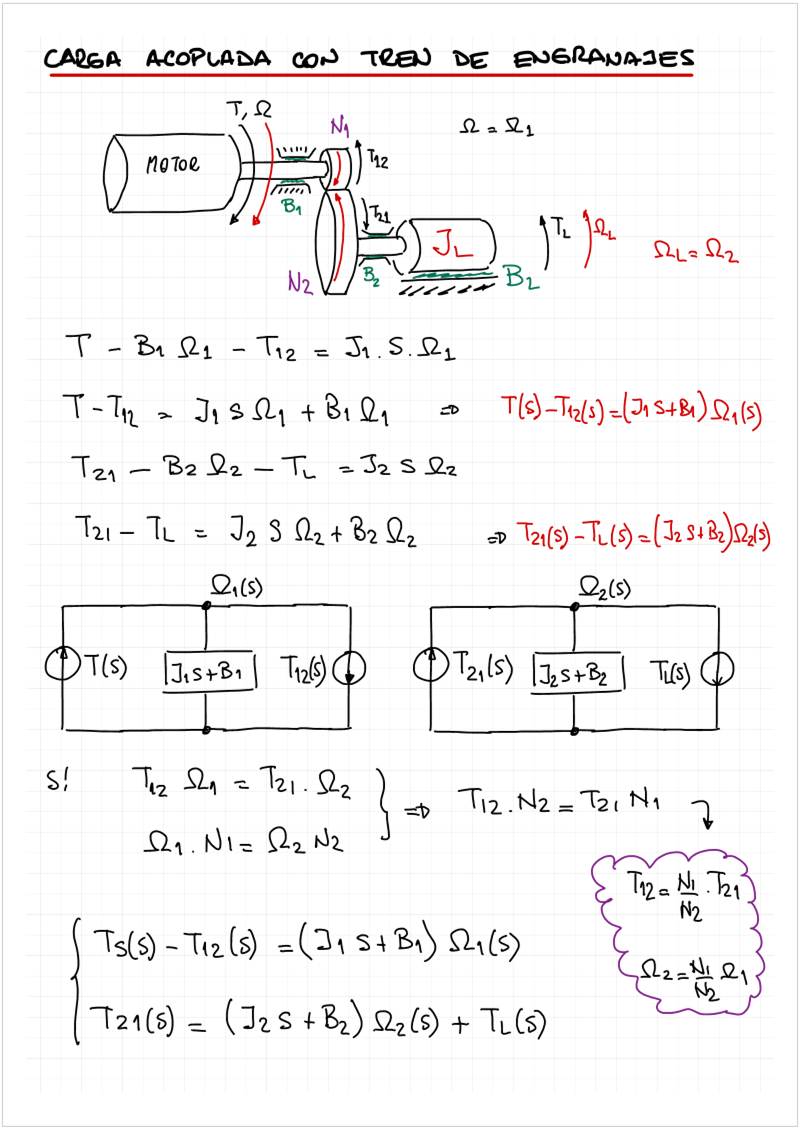 CARGA ACOPLADA CON TREN DE ENGRANAJES
T, Ω
N1
Ω = Ω1
MOTOR
T12
B1
T21
JL
TL
ΩL
ΩL = Ω2
N2
B2
B2
T - B1 Ω1 - T12 = J1 . S . Ω1
T - T12 = J1 S Ω1 + B1 Ω1 ⇒ T(s) - T12(s) = (J1 S + B1) Ω1(s)
T21 - B2 Ω2 - TL = J2 S Ω2
T21 - TL = J2 S Ω2 + B2 Ω2 ⇒ T21(s) - TL(s) = (J2 S + B2) Ω2(s)
Ω1(s) Ω2(s)
T(s) J1 S + B1 T12(s) T21(s) J2 S + B2 TL(s)
S! T12 Ω1 = T21 . Ω2
Ω1 . N1 = Ω2 N2
⇒ T12 . N2 = T21 N1
T12 = N1/N2 . T21
Ω2 = N1/N2 Ω1
TS(s) - T12(s) = (J1 S + B1) Ω1(s)
T21(s) = (J2 S + B2) Ω2(s) + TL(s)